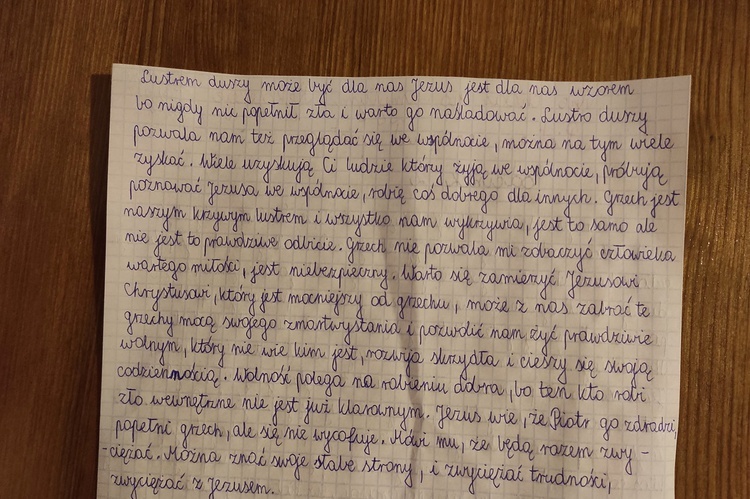 Lustrem duszy może być dla nas Jezus jest dla nas wzorem
bo nigdy nic popełnił zła i warto go naśladować. Lustro duszy
pozwala nam też przeglądać się we wspólnocie, można na tym wiele
zyskać. Wiele uzyskują Ci ludzie który żyją we wspólnocie, próbują
poznawać Jezusa we wspólnocie, robię coś dobrego dla innych. Grzech jest
naszym krzywym lustrem i wszystko nam wykrzywia, jest to samo ale
nie jest to prawdziwe odbicie. Grzech nie pozwala mi zobaczyć człowieka
wartego miłości, jest niebezpieczny. Warto się zamierzyć Jezusowi
Chrystusowi, który jest mocniejszy od grzechu, może z nas zabrać te
grzechy mocą swojego zmartwystania i pozwolić nam żyć prawdziwie
wolnym, który nie wie kim jest, rozwija skrzydła i cieszy się swoją
codziennością. Wolność polega na robieniu dobra, bo ten kto robi
zło wewnętrzne nie jest już klarownym. Jezus wie, że Piotr go zdradzi,
popełni grzech, ale się nie wycofuje. Mówi mu, że będą razem zwy -
- ciężać. Można znać swoje słabe strony, i zwyciężać trudności,
zwyciężać z Jezusem.